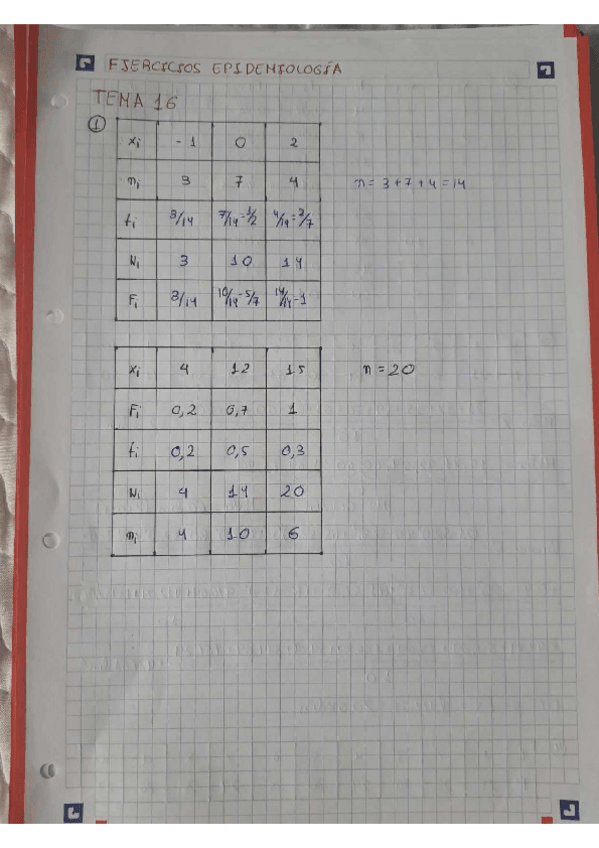 EJERCICIOS EPIDEMIOLOGÍA
TEMA 16
1
xi -1 0 2
ni 3 7 4 n = 3 + 7 + 4 = 14
fi 3/14 7/14 = 1/2 4/14 = 2/7
Ni 3 10 14
Fi 3/14 10/14 = 5/7 14/14 = 1
xi 4 12 15 n = 20
Fi 0,2 0,7 1
fi 0,2 0,5 0,3
Ni 4 14 20
ni 4 10 6